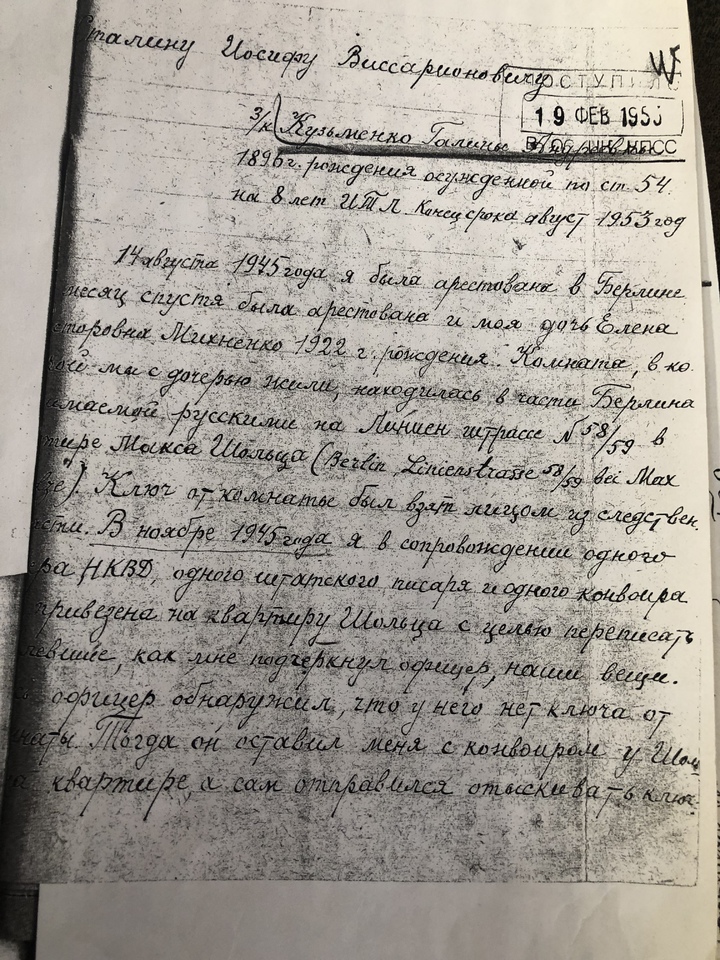 Сталину Иосифу Виссарионовичу
ПОСТУПИЛО
19 ФЕВ 1953
з/к Кузьменко Галины Андреевны
1896 г. рождения осужденной по ст. 54
на 8 лет ИТЛ. Конец срока август 1953 год
14 августа 1945 года я была арестована в Берлине
месяц спустя была арестована и моя дочь Елена
сторовна Михненко 1922 г. рождения. Комната, в ко
рой мы с дочерью жили, находилась в части Берлина
имаемой русскими на Линиен штрассе № 58/59 в
тире Макса Шольца (Berlin Linienstrasse 58/59 bei Max
Ключ от комнаты был взят лицом из следствен.
сти. В ноябре 1945 года я в сопровождении одного
ра НКВД, одного штатского писаря и одного конвоира
привезена на квартиру Шольца с целью переписать
левшие, как мне подчеркнул офицер, наши вещи.
офицер обнаружил, что у него нет ключа от
наты. Тогда он оставил меня с конвоиром у Шоль
квартире, а сам отправился отыскивать ключ.